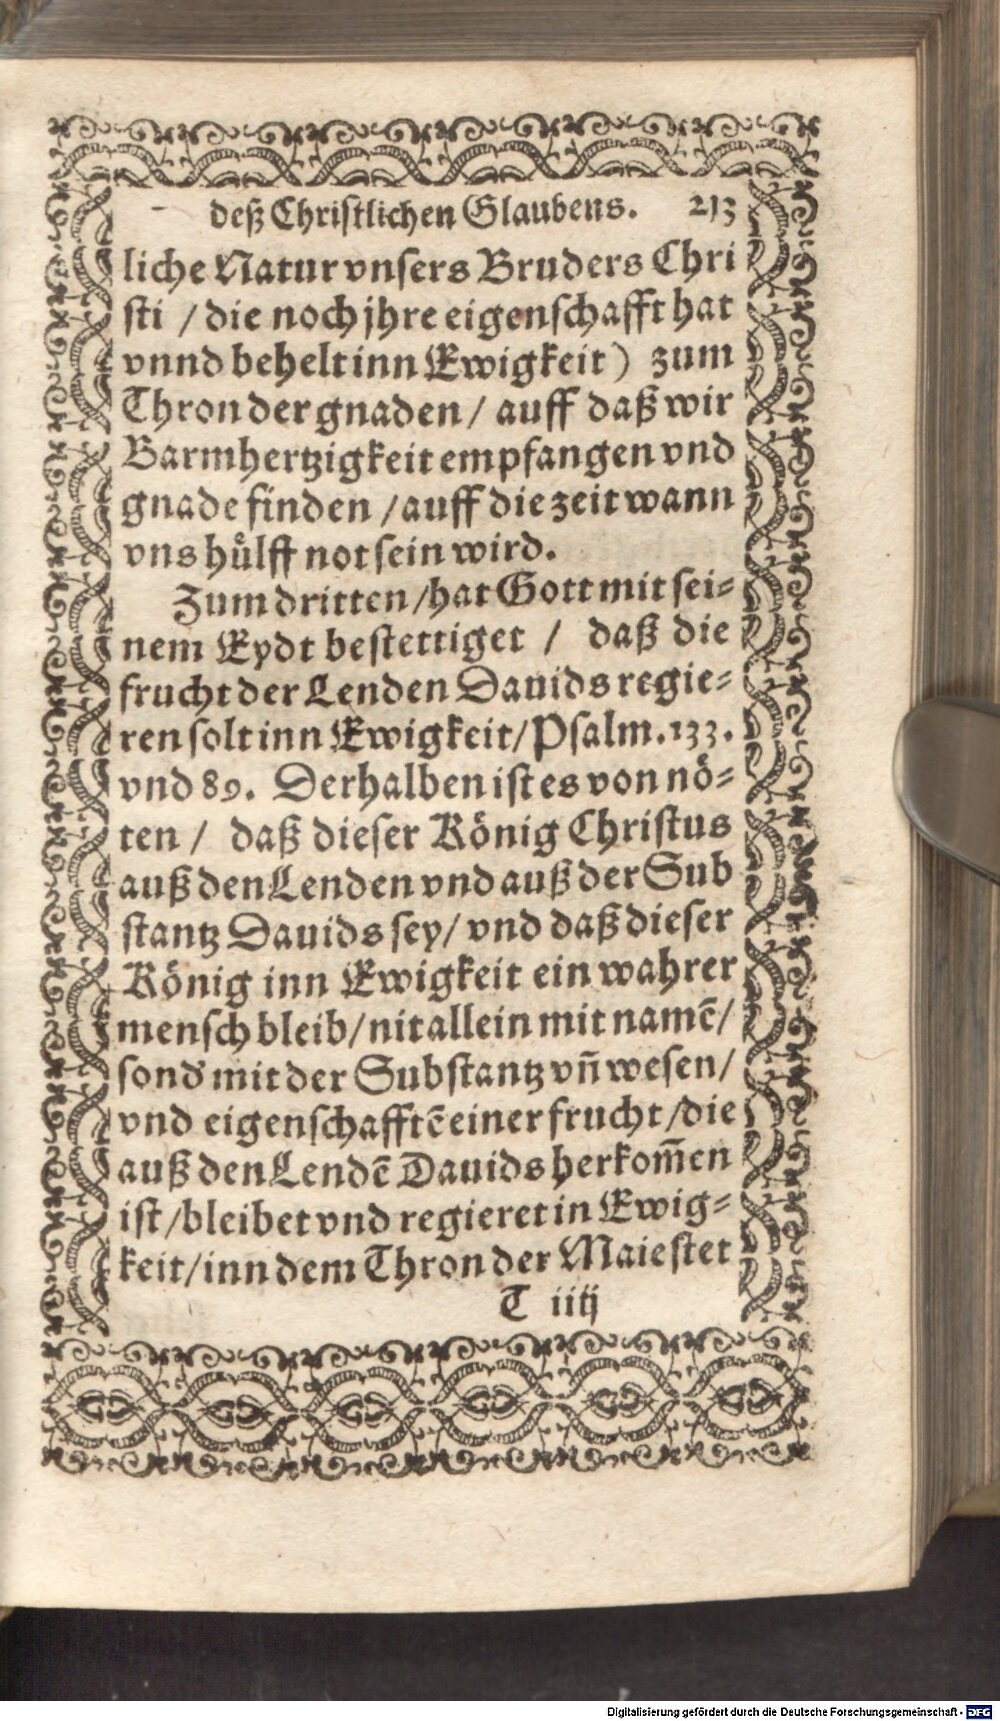 deß Christlichen Glaubens. 213
liche Natur vnsers Bruders Chri
sti / die noch jhre eigenschafft hat
vnnd behelt inn Ewigkeit) zum
Thron der gnaden / auff daß wir
Barmhertzigkeit empfangen vnd
gnade finden / auff die zeit wann
vns hülff not sein wird.
Zum dritten / hat Gott mit sei-
nem Eydt bestettiget / daß die
frucht der Lenden Dauids regie-
ren solt inn Ewigkeit / Psalm. 133.
vnd 89. Derhalben ist es von nö-
ten / daß dieser König Christus
auß den Lenden vnd auß der Sub
stantz Dauids sey / vnd daß dieser
König inn Ewigkeit ein wahrer
mensch bleib / nit allein mit namẽ /
sond' mit der Substantz vñ wesen /
vnd eigenschafftẽ einer frucht / die
auß den Lendẽ Dauids herkom̃en
ist / bleibet vnd regieret in Ewig-
keit / inn dem Thron der Maiestet
T iiij
Digitalisierung gefördert durch die Deutsche Forschungsgemeinschaft - DFG